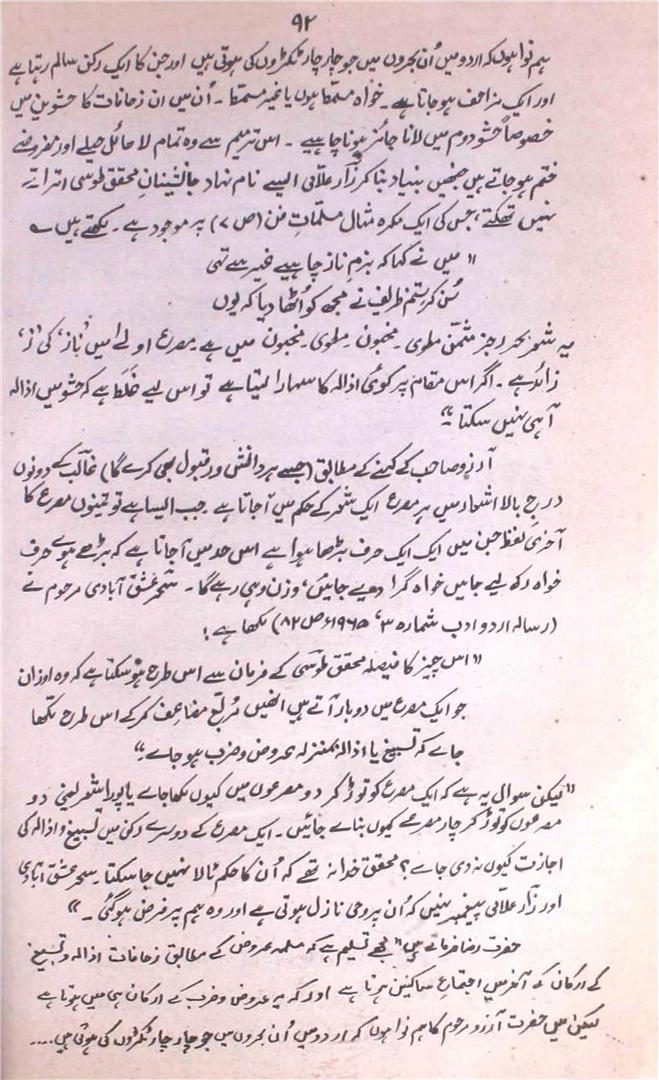 ۹۲
ہم نوا ہوں کہ اردو میں اُن بحروں میں جو چار چار ٹکڑوں کی ہوتی ہیں اور جن کا ایک رکن سالم رہتا ہے
اور ایک مزاحف ہو جاتا ہے۔ خواہ مسمّٹا ہوں یا غیر مسمّٹا۔ اُن میں ان زحافات کا حشوین میں
خصوصاً حشو دوم میں لانا جائز ہونا چاہیے۔ اس ترمیم سے وہ تمام لا حائل حیلے اور مفروضے
ختم ہو جاتے ہیں جنھیں بنیاد بنا کر زآر علّاتی ایسے نام نہاد جانشینانِ محقق طوسی اتراتے
نہیں تھکتے، جس کی ایک مکرہ مثال مسلّماتِ فن (ص ۷) پر موجود ہے۔ لکھتے ہیں
"میں نے کہا کہ بزمِ ناز چاہیے غیر سے تہی
سُن کر ستم ظریف نے مجھ کو اُٹھا دیا کہ یوں
یہ شعر بحر رجز مثمّن مطوی۔ مخبون۔ مطوی۔ مخبون میں ہے۔ مصرع اولےٰ میں 'ناز' کی 'ز'
زائد ہے۔ اگر اس مقام پر کوئی اذالہ کا سہارا لیتا ہے تو اس لیے غَلَط ہے کہ حشو میں اذالہ
آ ہی نہیں سکتا۔"
آرزو صاحب کے کہنے کے مطابق (جسے ہر دانش ور قبول بھی کرے گا) غالب کے دونوں
درج بالا اشعار میں ہر مصرع ایک شعر کے حکم میں آ جاتا ہے جب ایسا ہے تو تینوں مصرع کا
آخری لفظ جن میں ایک ایک حرف بڑھا ہوا ہے اس حد میں آ جاتا ہے کہ بڑھے ہوے حرف
خواہ رکھ لیے جایں خواہ گرا دیے جائیں، وزن وہی رہے گا۔ سحر عشق آبادی مرحوم نے
(رسالہ اردو ادب شمارہ ۳، ۱۹۶۵ء ص ۸۲) لکھا ہے:
"اس چیز کا فیصلہ محقق طوسی کے فرمان سے اس طرح ہو سکتا ہے کہ وہ اوزان
جو ایک مصرع میں دو بار آتے ہیں انھیں مُربّع مضاعف کر کے اس طرح لکھا
جاے کہ تسبیغ یا اذالہ بمنزلہ عروض و ضرب ہو جاے۔"
"لیکن سوال یہ ہے کہ ایک مصرع کو توڑ کر دو مصرعوں میں کیوں لکھا جاے یا پورا شعر یعنی دو
مصرعوں کو توڑ کر چار مصرعے کیوں بناے جائیں۔ ایک مصرع کے دوسرے رکن میں تسبیغ و اذالہ کی
اجازت کیوں نہ دی جاے؟ محقق خدا نہ تھے کہ اُن کا حکم ٹالا نہیں جا سکتا۔ سحر عشق آبادی
اور زآر علّاتی پیغمبر نہیں کہ اُن پر وحی نازل ہوتی ہے اور وہ ہم پر فرض ہو گئی۔"
حضرت رضا فرماتے ہیں "مجھے تسلیم ہے کہ مسلمہ عروض کے مطابق زحافات اذالہ و تسبیغ
کے ارکان کے آخر میں اجتماع ساکنین ہوتا ہے اور کہ یہ عروض و ضرب کے ارکان ہی میں ہوتا ہے
لیکن میں حضرت آرزو مرحوم کا ہم نوا ہوں کہ اردو میں اُن بحروں میں جو چار چار ٹکڑوں کی ہوتی ہیں....